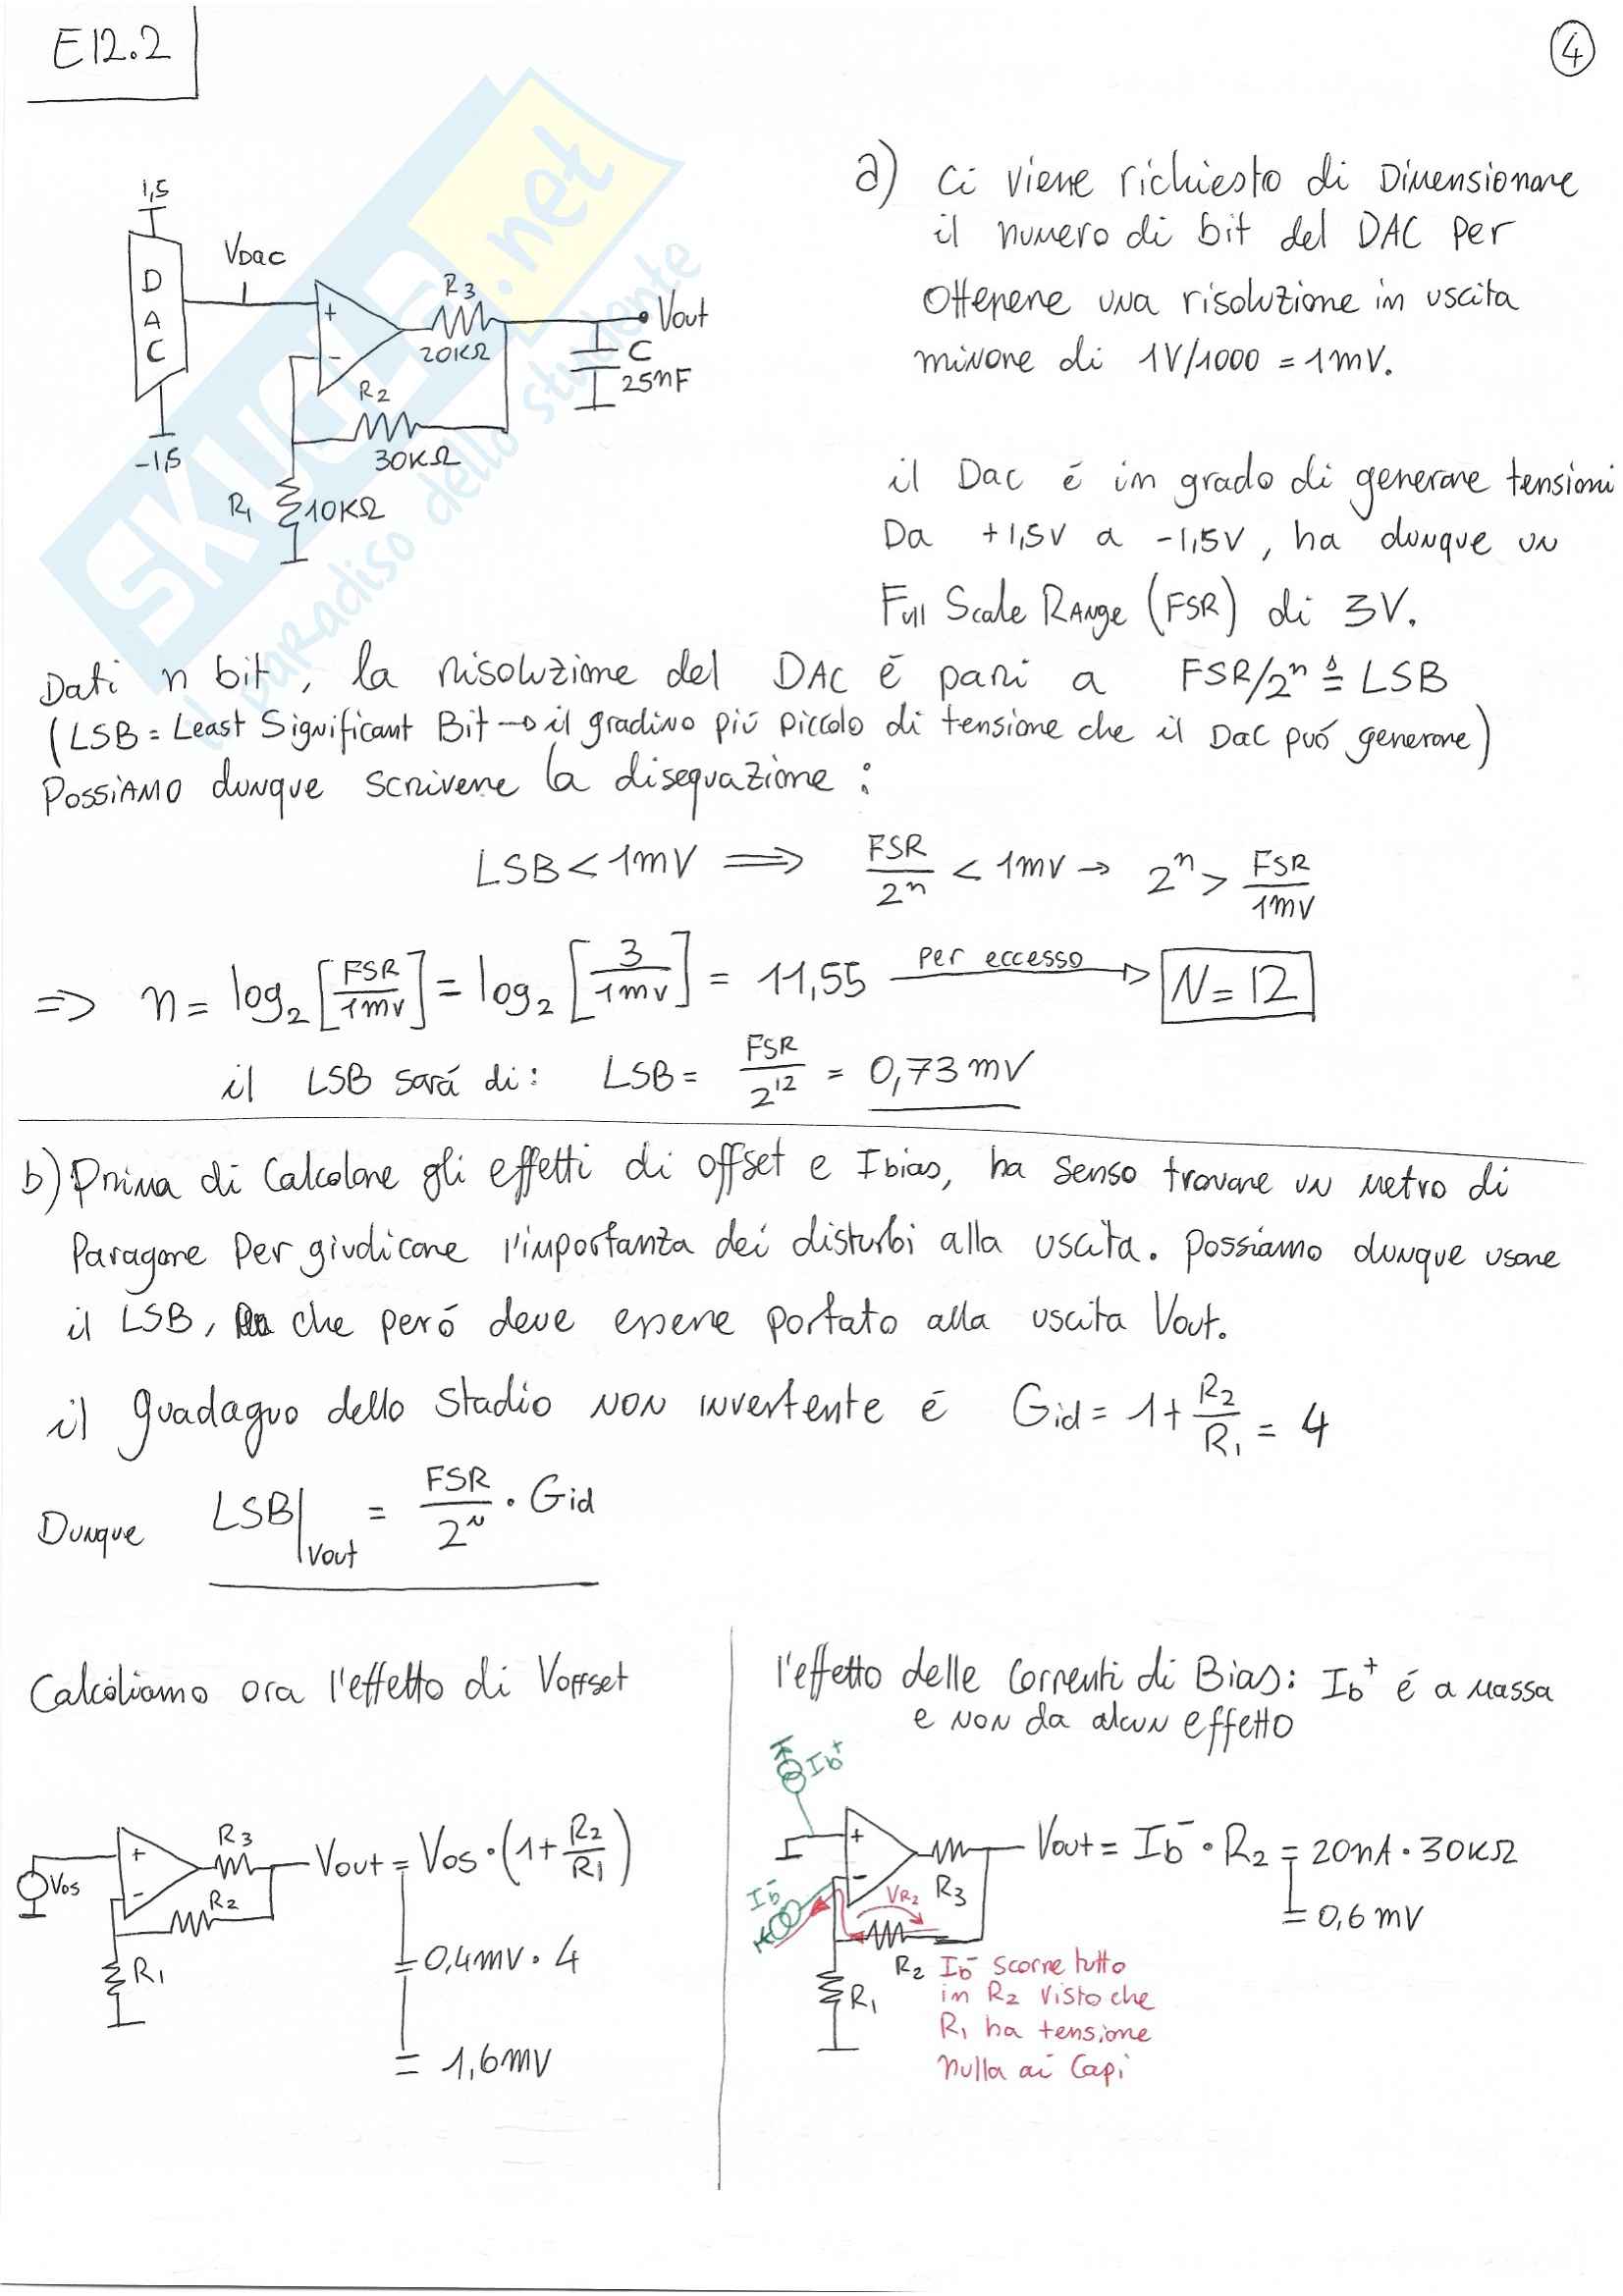 E12.2
4
1,5
DAC
-1,5
VDAC
+
-
R3
20KΩ
Vout
C
25nF
R2
30KΩ
R1
10KΩ
SKUOLA.net
il paradiso dello studente
a) Ci viene richiesto di Dimensionare
il numero di bit del DAC per
ottenere una risoluzione in uscita
minore di 1V/1000 = 1mV.
il Dac é in grado di generare tensioni
Da +1,5V a -1,5V, ha dunque un
Full Scale Range (FSR) di 3V.
Dati n bit, la risoluzione del DAC é pari a FSR/2^n ≜ LSB
(LSB = Least Significant Bit → il gradino piú piccolo di tensione che il Dac puó generare)
Possiamo dunque scrivere la disequazione :
LSB < 1mV ⟹ FSR/2^n < 1mV → 2^n > FSR/1mV
=> n = log2 [FSR/1mV] = log2 [3/1mV] = 11,55 per eccesso → N = 12
il LSB sará di: LSB = FSR/2^12 = 0,73 mV
b) Prima di Calcolare gli effetti di offset e Ibias, ha senso trovare un metro di
Paragone Per giudicare l'importanza dei disturbi alla uscita. Possiamo dunque usare
il LSB, che peró deve essere portato alla uscita Vout.
il guadagno dello stadio NON invertente é Gid = 1 + R2/R1 = 4
Dunque LSB|Vout = FSR/2^N · Gid
Calcoliamo ora l'effetto di Voffset
Vos
+
-
R3
R2
R1
Vout = Vos · (1 + R2/R1)
= 0,4mV · 4
= 1,6mV
l'effetto delle Correnti di Bias: Ib+ é a massa
e NON da alcun effetto
Ib+
+
-
Ib-
VR2
R3
R2
R1
Vout = Ib- · R2 = 20nA · 30KΩ
= 0,6 mV
Ib- scorre tutto
in R2 visto che
R1 ha tensione
nulla ai Capi